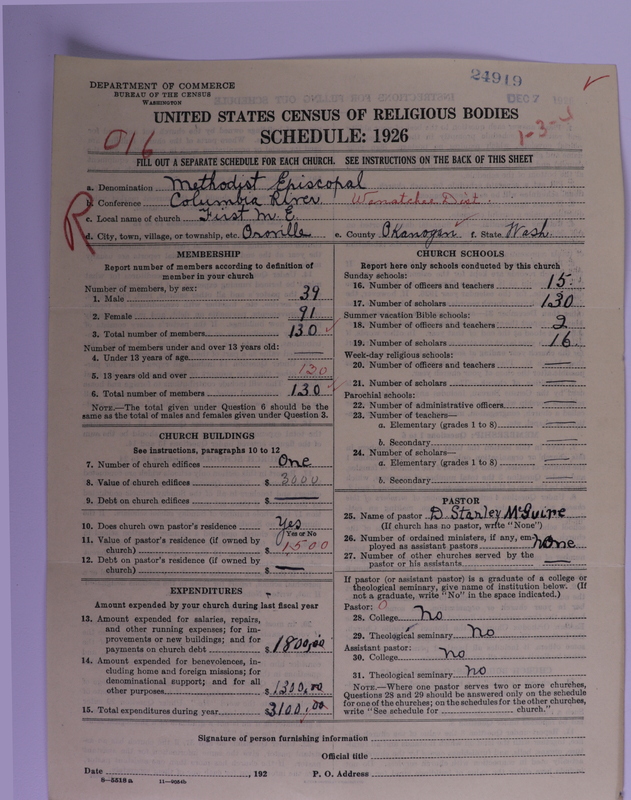 24919
DEPARTMENT OF COMMERCE
BUREAU OF THE CENSUS
WASHINGTON
DEC 7
UNITED STATES CENSUS OF RELIGIOUS BODIES
SCHEDULE: 1926
1-3-4
016
FILL OUT A SEPARATE SCHEDULE FOR EACH CHURCH. SEE INSTRUCTIONS ON THE BACK OF THIS SHEET
R
a. Denomination Methodist Episcopal
b. Conference Columbia River Wenatchee Dist.
c. Local name of church First M. E.
d. City, town, village, or township, etc. Oroville e. County Okanogen f. State Wash.
MEMBERSHIP
Report number of members according to definition of
member in your church
Number of members, by sex:
1. Male 39
2. Female 91
3. Total number of members 130
Number of members under and over 13 years old:
4. Under 13 years of age
5. 13 years old and over 130
6. Total number of members 130
NOTE.—The total given under Question 6 should be the
same as the total of males and females given under Question 3.
CHURCH BUILDINGS
See instructions, paragraphs 10 to 12
7. Number of church edifices One
8. Value of church edifices $ 3000
9. Debt on church edifices $
10. Does church own pastor's residence Yes
Yes or No
11. Value of pastor's residence (if owned by
church) $ 1500
12. Debt on pastor's residence (if owned by
church) $
EXPENDITURES
Amount expended by your church during last fiscal year
13. Amount expended for salaries, repairs,
and other running expenses; for im-
provements or new buildings; and for
payments on church debt $ 1800.00
14. Amount expended for benevolences, in-
cluding home and foreign missions; for
denominational support; and for all
other purposes $ 1300.00
15. Total expenditures during year $ 3100.00
CHURCH SCHOOLS
Report here only schools conducted by this church
Sunday schools:
16. Number of officers and teachers 15
17. Number of scholars 130
Summer vacation Bible schools:
18. Number of officers and teachers 2
19. Number of scholars 16
Week-day religious schools:
20. Number of officers and teachers
21. Number of scholars
Parochial schools:
22. Number of administrative officers
23. Number of teachers—
a. Elementary (grades 1 to 8)
b. Secondary
24. Number of scholars—
a. Elementary (grades 1 to 8)
b. Secondary
PASTOR
25. Name of pastor D. Stanley McGuire
(If church has no pastor, write "None")
26. Number of ordained ministers, if any, em-
ployed as assistant pastors none
27. Number of other churches served by the
pastor or his assistants
If pastor (or assistant pastor) is a graduate of a college or
theological seminary, give name of institution below. (If
not a graduate, write "No" in the space indicated.)
Pastor: 0
28. College No
29. Theological seminary No
Assistant pastor:
30. College No
31. Theological seminary No
NOTE.—Where one pastor serves two or more churches,
Questions 28 and 29 should be answered only on the schedule
for one of the churches; on the schedules for the other churches,
write "See schedule for church."
Signature of person furnishing information
Official title
Date , 192 P. O. Address
8—5518a 11—9554b